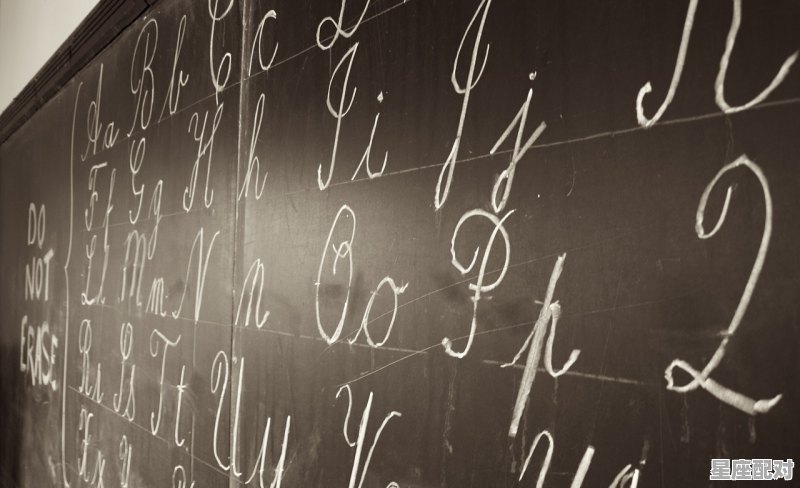 DO
NOT
ERASE
Aa Bb Cc D
Ff Gg Hh Ii Jj
Ll Mm Nn Oo Pp Q
Rr Ss Tt Uu V
Xx y
星座配对